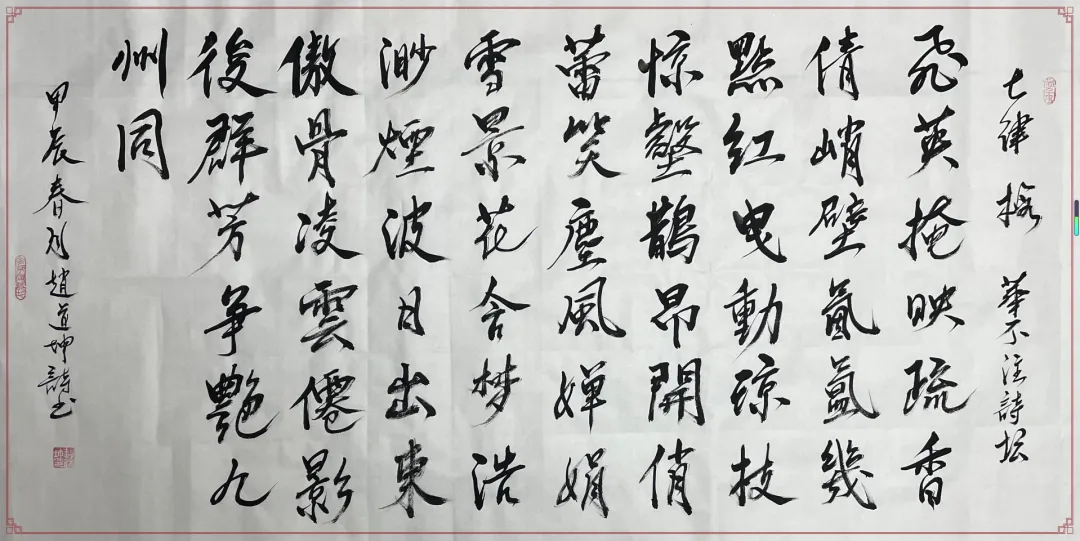 七律 梅 華不注詩坛
飛英掩映疏香
倩峭壁氤氲幾
點紅曳動琼枝
惊壑鵲昂開俏
蕾笑塵風嬋娟
雪景花含梦浩
渺煙波日出東
傲骨凌雲僊影
後群芳争艷九
州同
甲辰春月趙道坤詩书